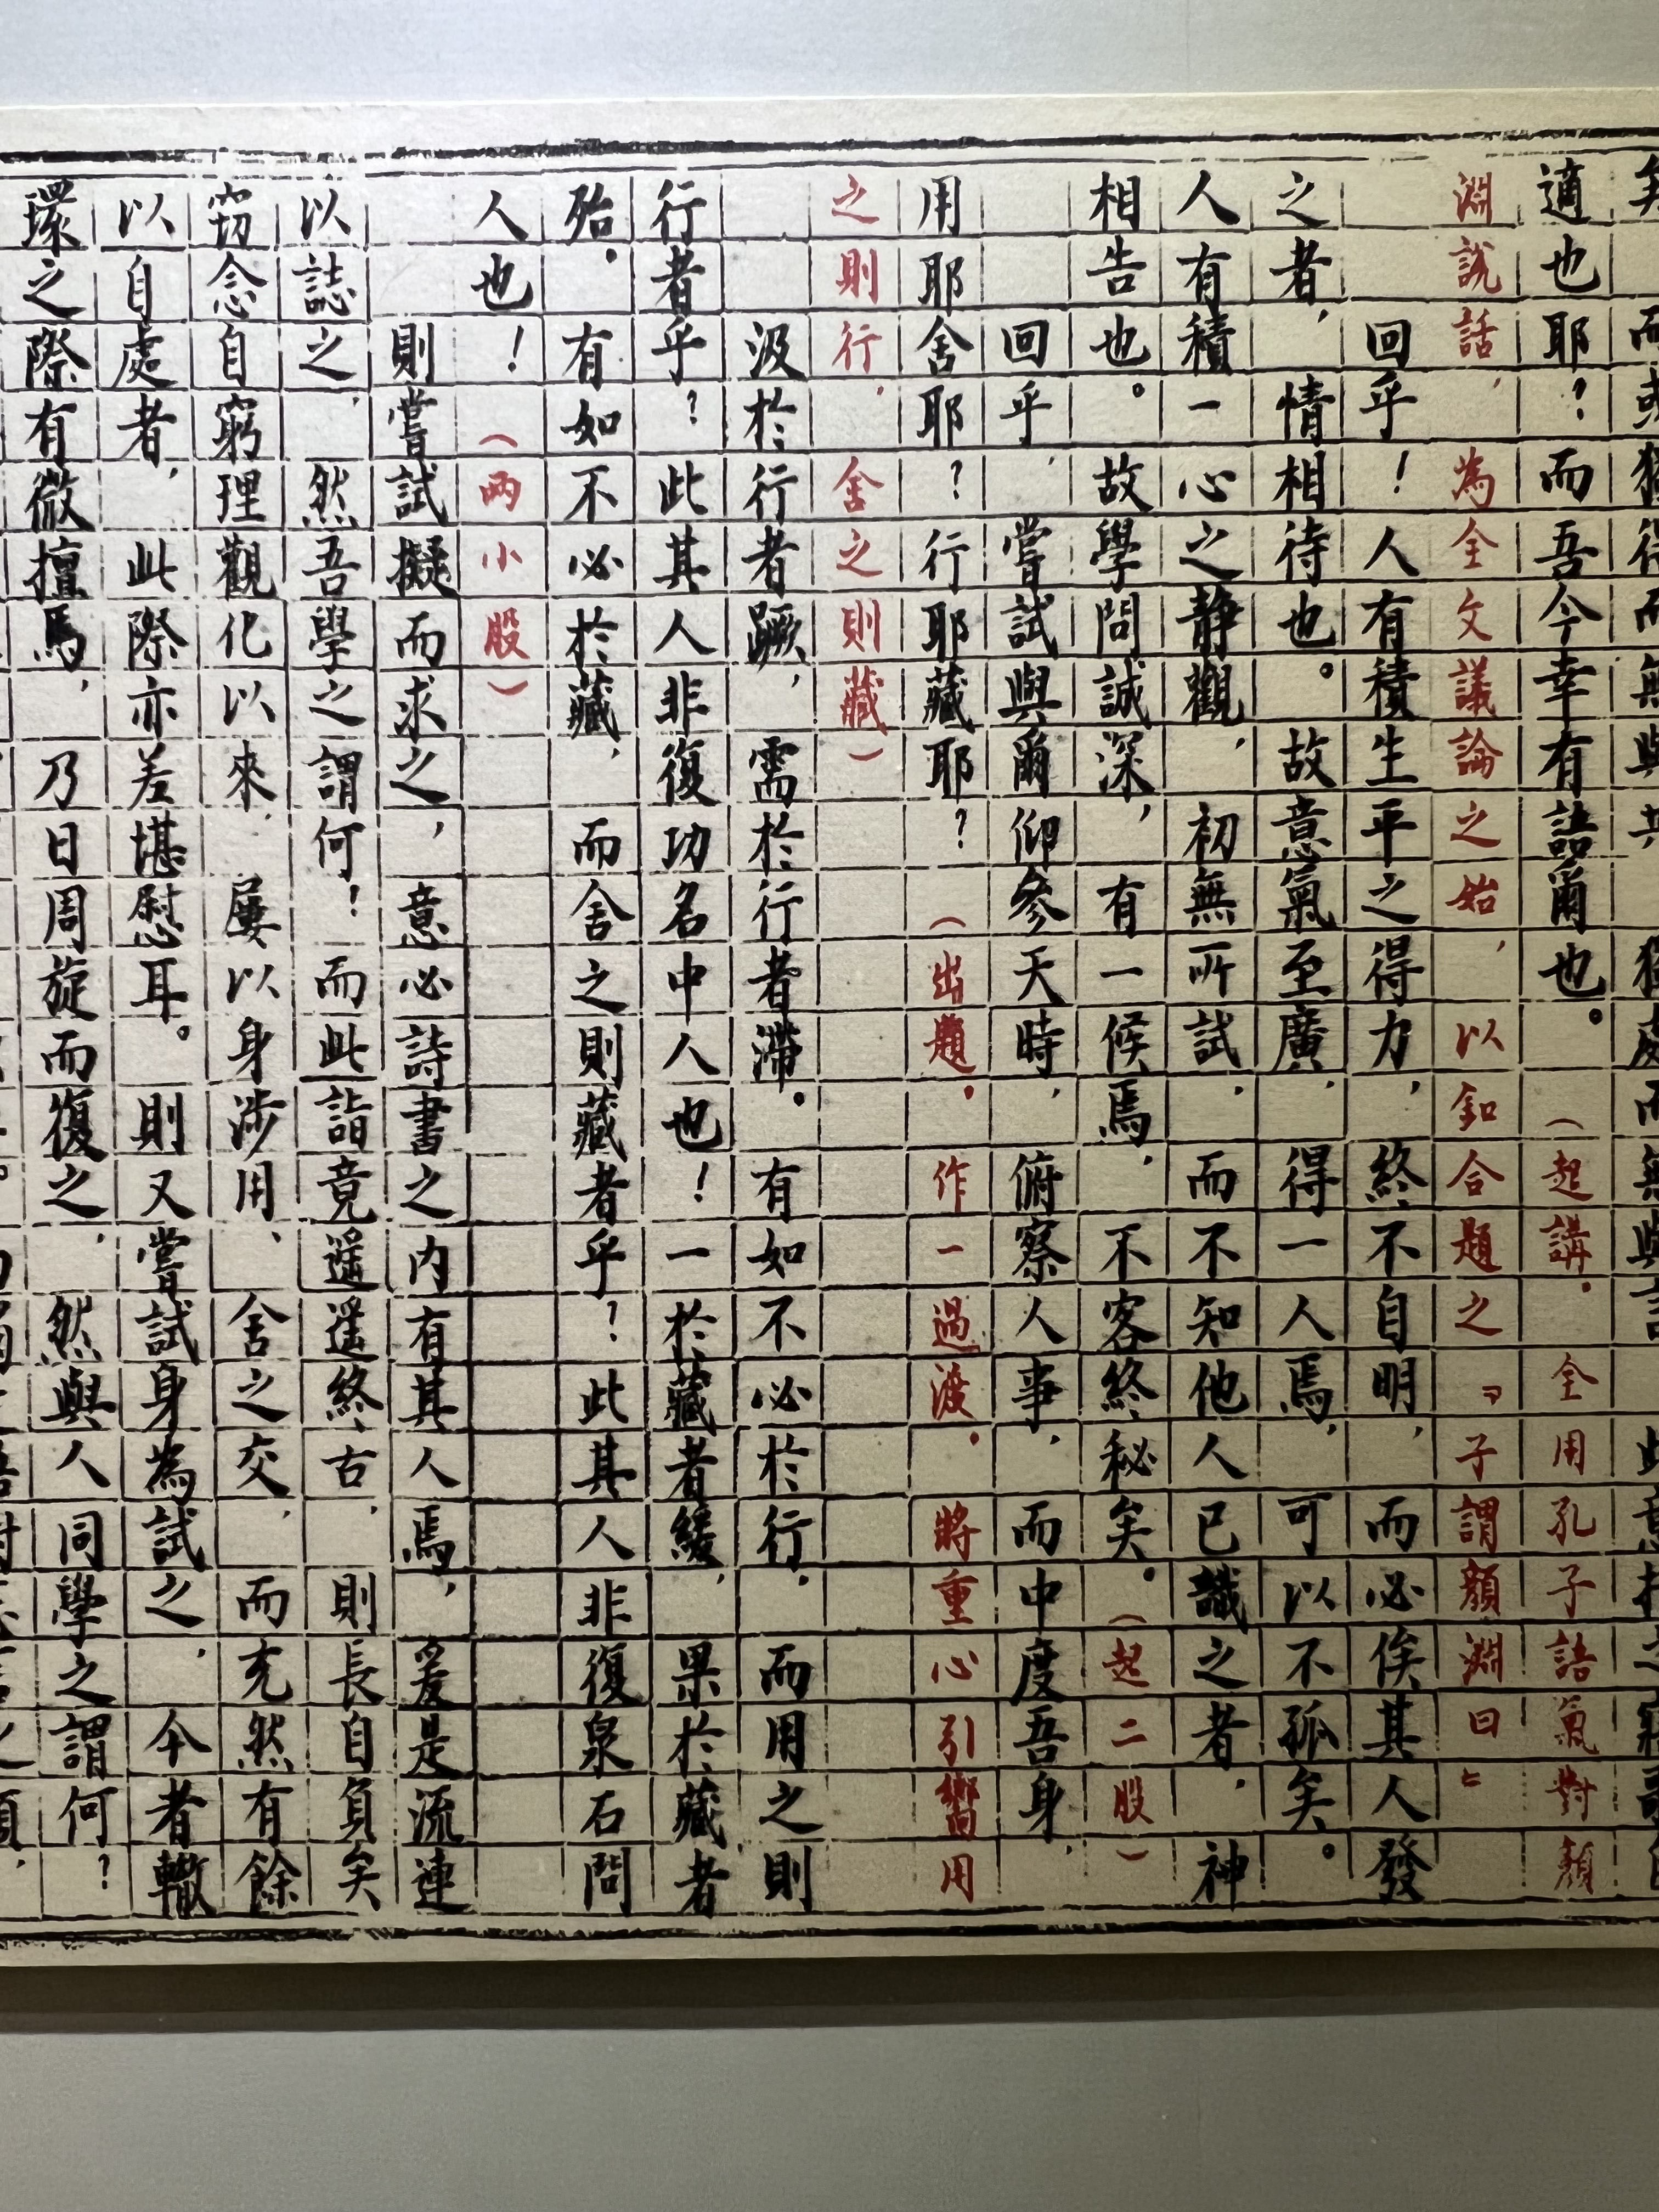 適也耶？而吾今幸有語爾也。（起講。全用孔子語氣對顏
淵說話，為全文議論之始，以釦合題之『子謂顏淵曰』
回乎！人有積生平之得力，終不自明，而必俟其人發
之者，情相待也。故意氣至廣，得一人焉，可以不孤矣。
人有積一心之靜觀，初無所試，而不知他人已識之者，神
相告也。故學問誠深，有一候焉，不容終秘矣。（起二股）
回乎，嘗試與爾仰參天時，俯察人事，而中度吾身，
用耶舍耶？行耶藏耶？（出題。作一過渡。將重心引嚮用
之則行，舍之則藏）
汲於行者蹶，需於行者滯。有如不必於行，而用之則
行者乎？此其人非復功名中人也！一於藏者緩，果於藏者
殆。有如不必於藏，而舍之則藏者乎？此其人非復泉石問
人也！（兩小股）
則嘗試擬而求之，意必詩書之內有其人焉，爰是流連
以誌之，然吾學之謂何！而此詣竟遥遥終古，則長自負矣
窃念自窮理觀化以來，屢以身涉用、舍之交，而充然有餘
以自處者，此際亦差堪慰耳。則又嘗試身為試之，今者轍
環之際有微擅焉，乃日周旋而復之，然與人同學之謂何？